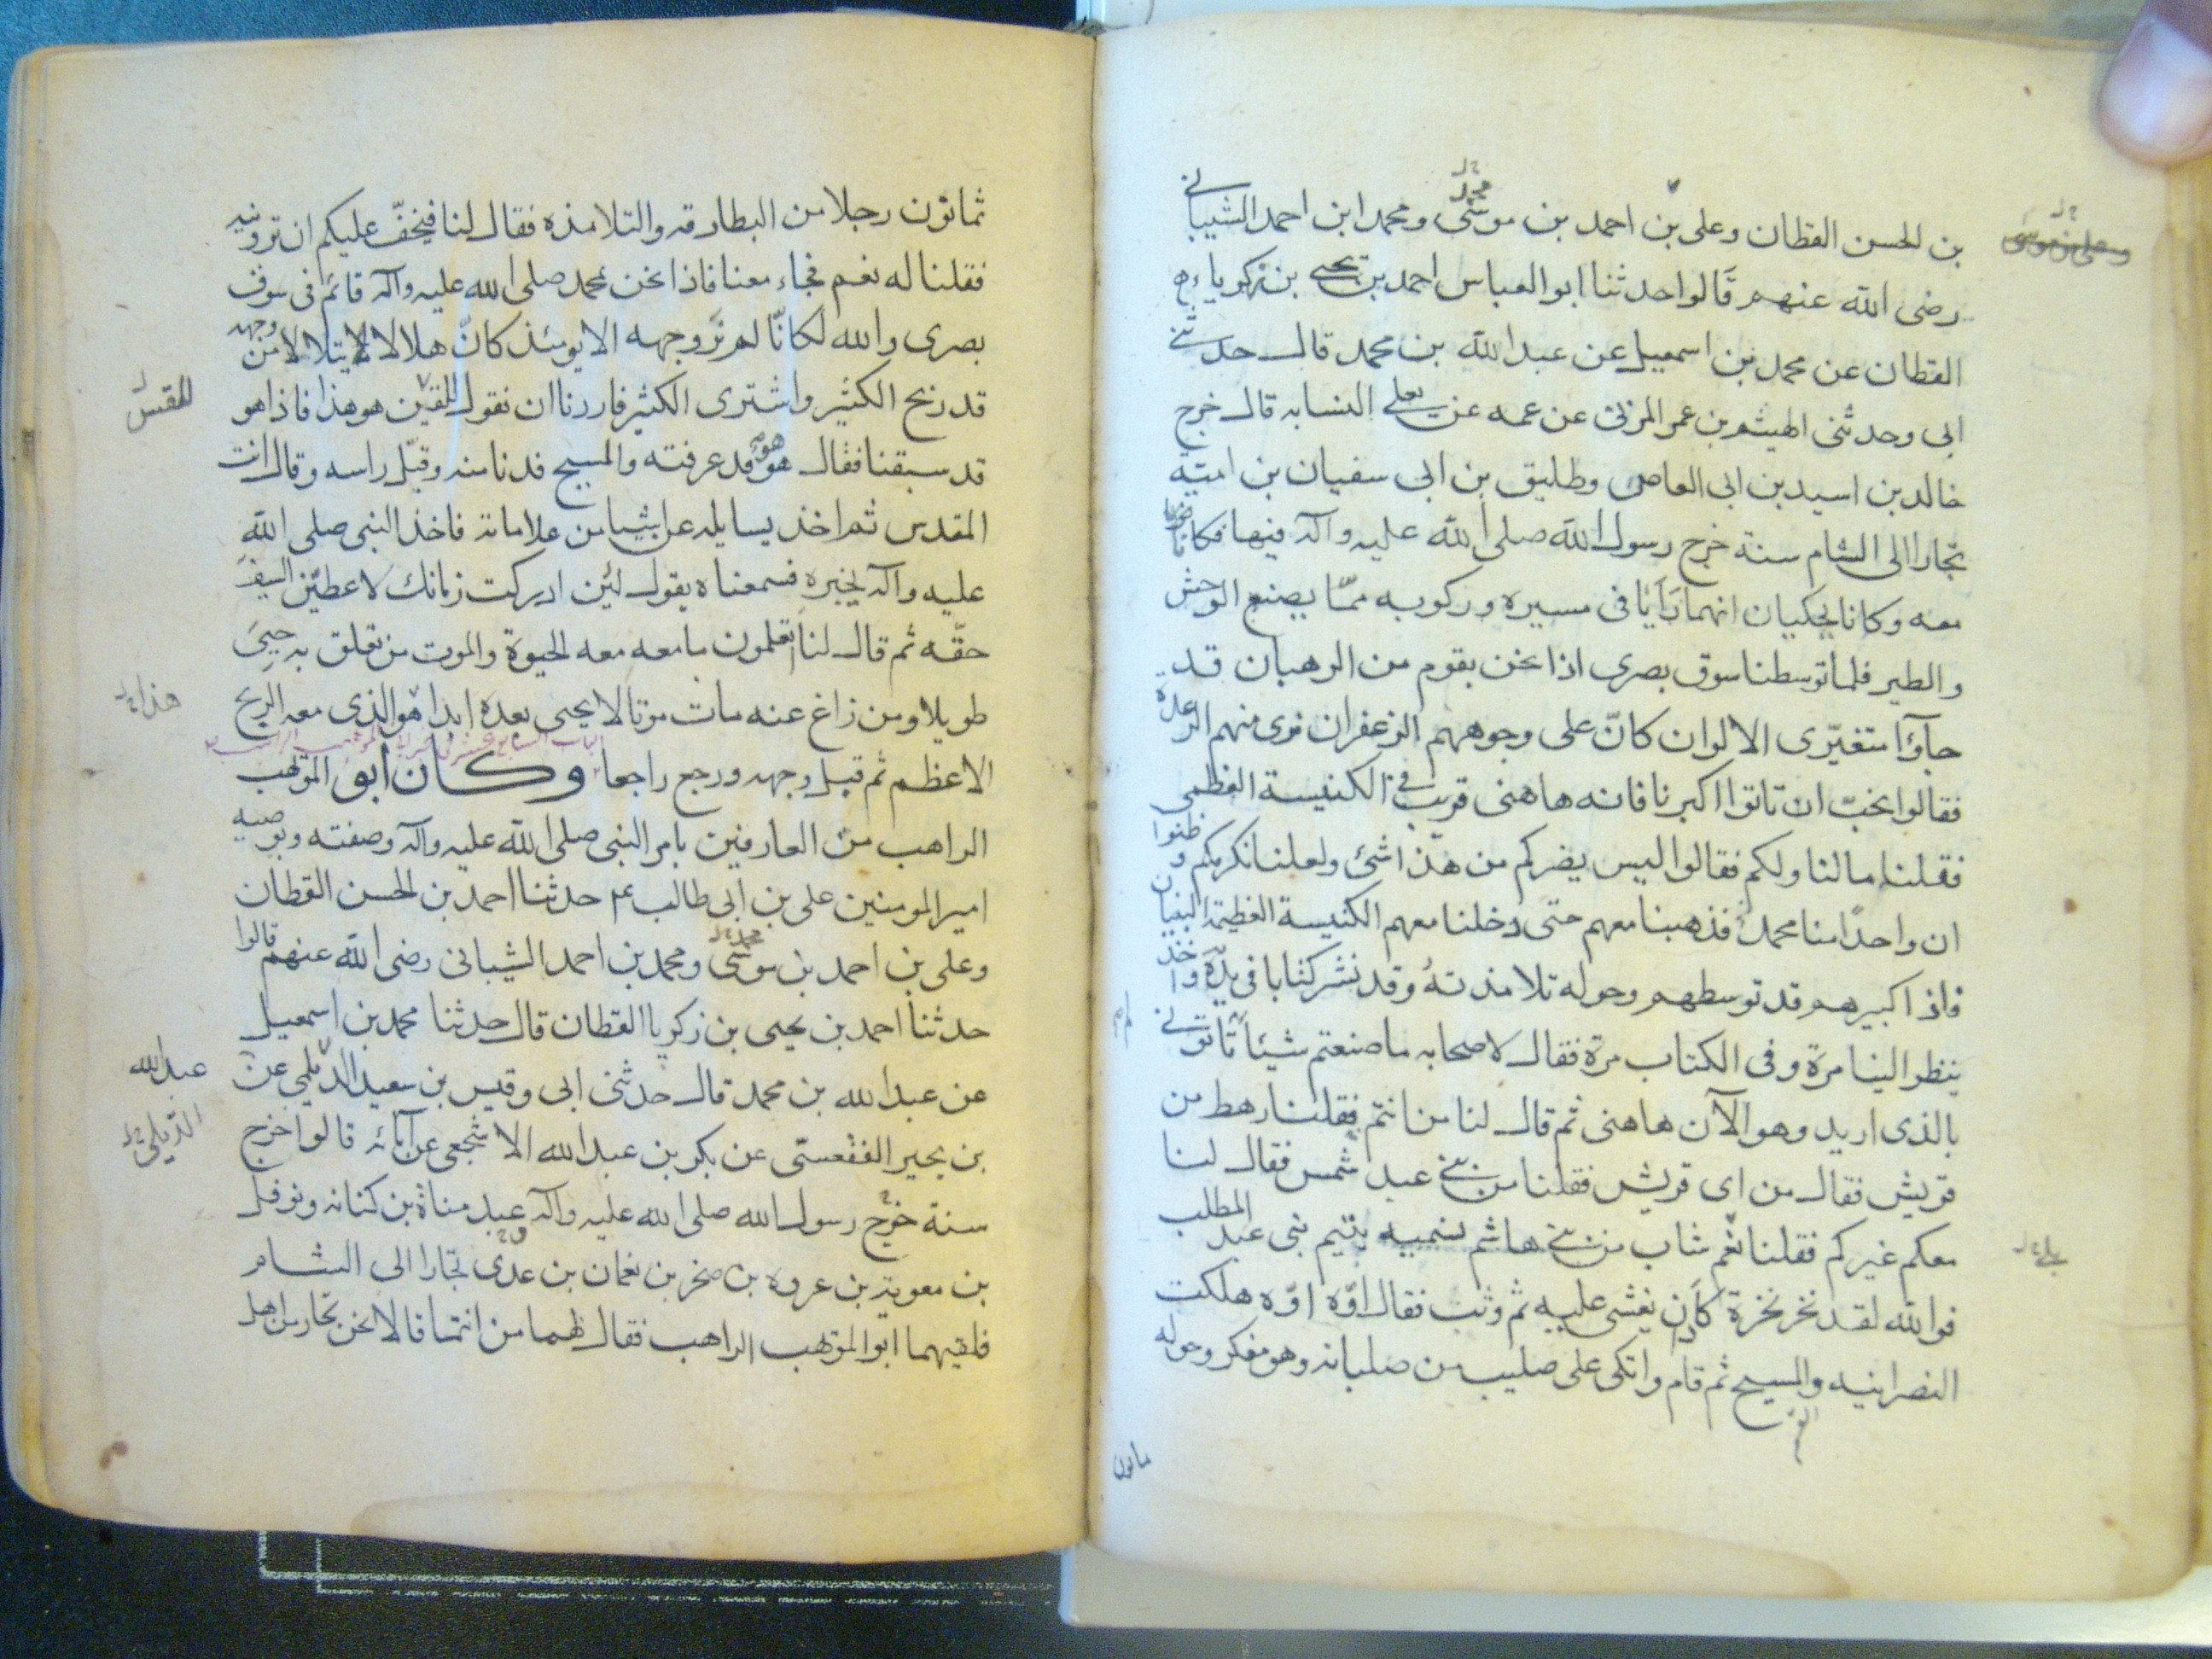 بن الحسن القطان وعلى بن احمد بن محمد موسى ومحمد ابن احمد الشيبانى
رضى الله عنهم قالوا حدثنا ابو العباس احمد بن يحيى بن زكرياء
القطان عن محمد بن اسمعيل عن عبد الله بن محمد قال حدثنى
ابى وحدثنى الهيثم بن عمر المزنى عن عمه عن يعلى النسابه قال خرج
خالد بن اسيد بن ابى العاص وطليق بن ابى سفيان بن اميّه
تجارا الى الشام سنة خرج رسول الله صلى الله عليه وآله فيها فكانا
معه وكانا يحكيان انهما رَأَيَا فى مسيره وركوبه ممّا يصنع الوحش
والطير فلما توسطنا سوق بصرى اذا نحن بقوم من الرهبان قد
جآؤا متغيّرى الالوان كانّ على وجوههم الزعفران نرى منهم الرعدة
فقالوا نحبّ ان تاتوا اكبرنا فانه هاهنى قريب فى الكنيسة العظمى
فقلنا مالنا ولكم فقالوا ليس يضركم من هذا شئ ولعلنا نكرمكم وظنوا
ان واحدًا منا محمد فذهبنا معهم حتى دخلنا معهم الكنيسة العظيمة البنيان
فاذا كبيرهم قد توسطهم وحوله تلامذتهُ وقد نشر كتابا فى يديه واخذ
ينظر الينا مرة وفى الكتاب مرة فقال لاصحابه ما صنعتم شيئا تأتونى
بالذى اريد وهو الآن هاهنى ثم قال لنا من انتم فقلنا رهط من
قريش فقال من اى قريش فقلنا من بنى عبد شمس فقال لنا
معكم غيركم فقلنا نعم شاب من بنى هاشم نسميه يتيم بنى عبد المطلب
فوالله لقد نخر نخرة كاد ان يغشى عليه ثم وثب فقال اوّه اوّه هلكت
النصرانيه والمسيح ثم قام واتكى على صليب من صلبانه وهو مفكر وحوله
ثمانون رجلا من البطارقه والتلامذه فقال لنا فيخفّ عليكم ان ترونيه
فقلنا له نعم فجاء معنا فاذا نحن بمحمد صلى الله عليه وآله قائم فى سوق
بصرى والله لكانّا لم نَرَ وجهه الا يومئذ كانّ هلالا لا يتلالا من وجهه
قد ربح الكثير واشترى الكثير فاردنا ان نقول للقسّ هو هذا فاذا هو
للقسّ
قد سبقنا فقال هو هو قد عرفته والمسيح فدنا منه وقبّل راسه وقال انت
المقدس ثم اخذ يسايله عن اشيا من علاماته فاخذ النبى صلى الله
عليه وآله يخبره فسمعناه يقول لئن ادركت زمانك لاعطيّن السيف
حقّه ثم قال لنا اتعلمون ما معه معه الحيوة والموت من تعلق به حيىَ
طويلا ومن زاغ عنه مات موتا لا يحيى بعده ابدا هو الذى معه الربح
هذا
الاعظم ثم قبل وجهه ورجع راجعا وكان ابو المويهب
الراهب من العارفين بامر النبى صلى الله عليه وآله وصفته وبوصيه
امير المومنين على بن ابى طالب ع م حدثنا احمد بن الحسن القطان
وعلى بن احمد بن محمد موسى ومحمد بن احمد الشيبانى رضى الله عنهم قالوا
حدثنا احمد بن يحيى بن زكريا القطان قال حدثنا محمد بن اسمعيل
عن عبد الله بن محمد قال حدثنى ابى وقيس بن سعيد الدّيلمى عن
عبد الله
الدّيلى
بن بحير الفقعسّى عن بكر بن عبد الله الاشجعى عن آبائه قالوا خرج
سنة خرج رسول الله صلى الله عليه وآله عبد مناة بن كنانه ونوفل
بن معوية بن عروه بن صخر بن نعمان بن عدى تجارا الى الشام
فلقيهما ابو المويهب الراهب فقال لهما من انتما قالا نحن تجار من اهل